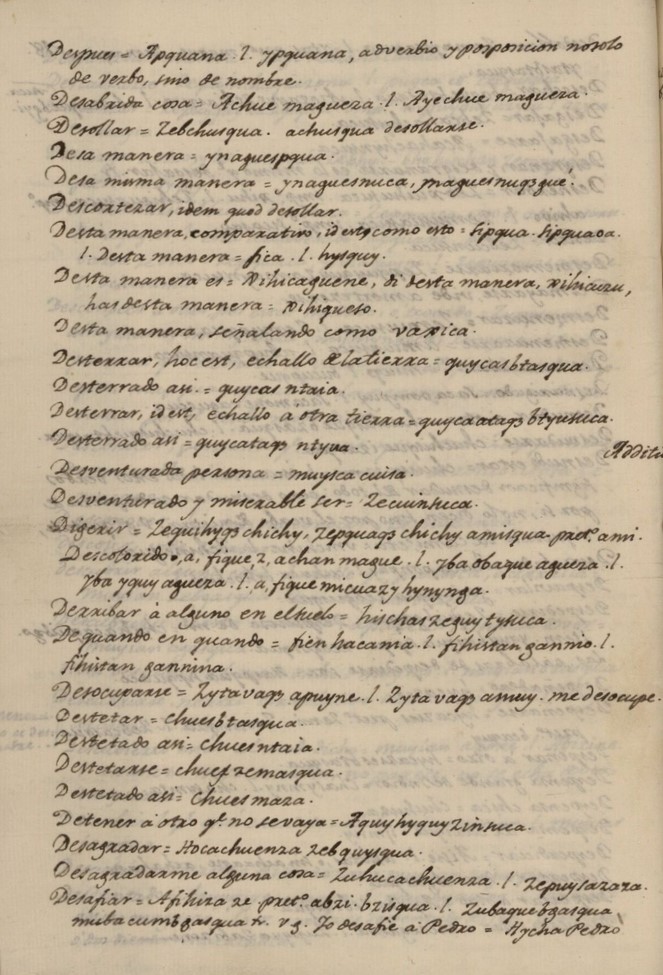 Despues = Apquana . l . ypquana, adverbio y posposicion no solo
de verbo, sino de nombre.
Desabrida cosa = Achue magueza . l . Ayechue magueza.
Desollar = Zebchusqua. achusqua desollarse.
Desa manera = ynaguespqua.
Desa misma manera = ynaguesnuca, ynaguesnuqȝ gué.
Descortezar, idem quod desollar.
Desta manera, comparativo, id est, como esto = sipqua. sipquaoa.
l. Desta manera = fica . l . hysquy.
Desta manera es = xihicaguene, di desta manera, xihicauzu,
has desta manera = xihiqueso.
Desta manera, señalando como va xica.
Desterrar, hoc est, echallo de la tierra = quycas btasqua.
Desterrado asi . = quycas ntaia.
Desterrar, id est, echallo á otra tierra = quycaataqȝ btyusuca.
Desterrado asi = quycataqȝ ntyua.
Additi
Desventurada persona = muysca cuisa.
Desventurado y miserable ser = Zecuinsuca.
Digerir = Zequihyqȝ chichy, zepquaqȝ chichy amisqua. pret.º ami.
Descolorido, a, fique z, achan mague . l . yba obaque agueza . l .
yba yquy agueza . l . a, fique micuazy hynynga.
Derribar á alguno en el suelo = hischas zeguy tysuca.
De quando en quando = fien hacania . l . fihistan gannio . l .
fihistan gannina.
Desocuparse = Zytavaqȝ apuyne . l . Zytavaqȝ amuy. me desocupe.
Destetar = chuesbtasqua.
Destetado asi = chuesntaia.
Destetarse = chuefzemasqua.
Destetado asi = chuesmaza.
Detener á otro q.e no se vaya = Aquyhyquyzinsuca.
Desagradar = Hocachuenza zebquysqua.
Desagradarme alguna cosa = Zuhucachuenza . l . zepuysazaza.
Desafiar = Afihiza ze pret.º abzi. bzisqua . l . Zubaquebgasqua
muba cumbgasqua tr. v.g. Yo desafie á Pedro = Hycha Pedro